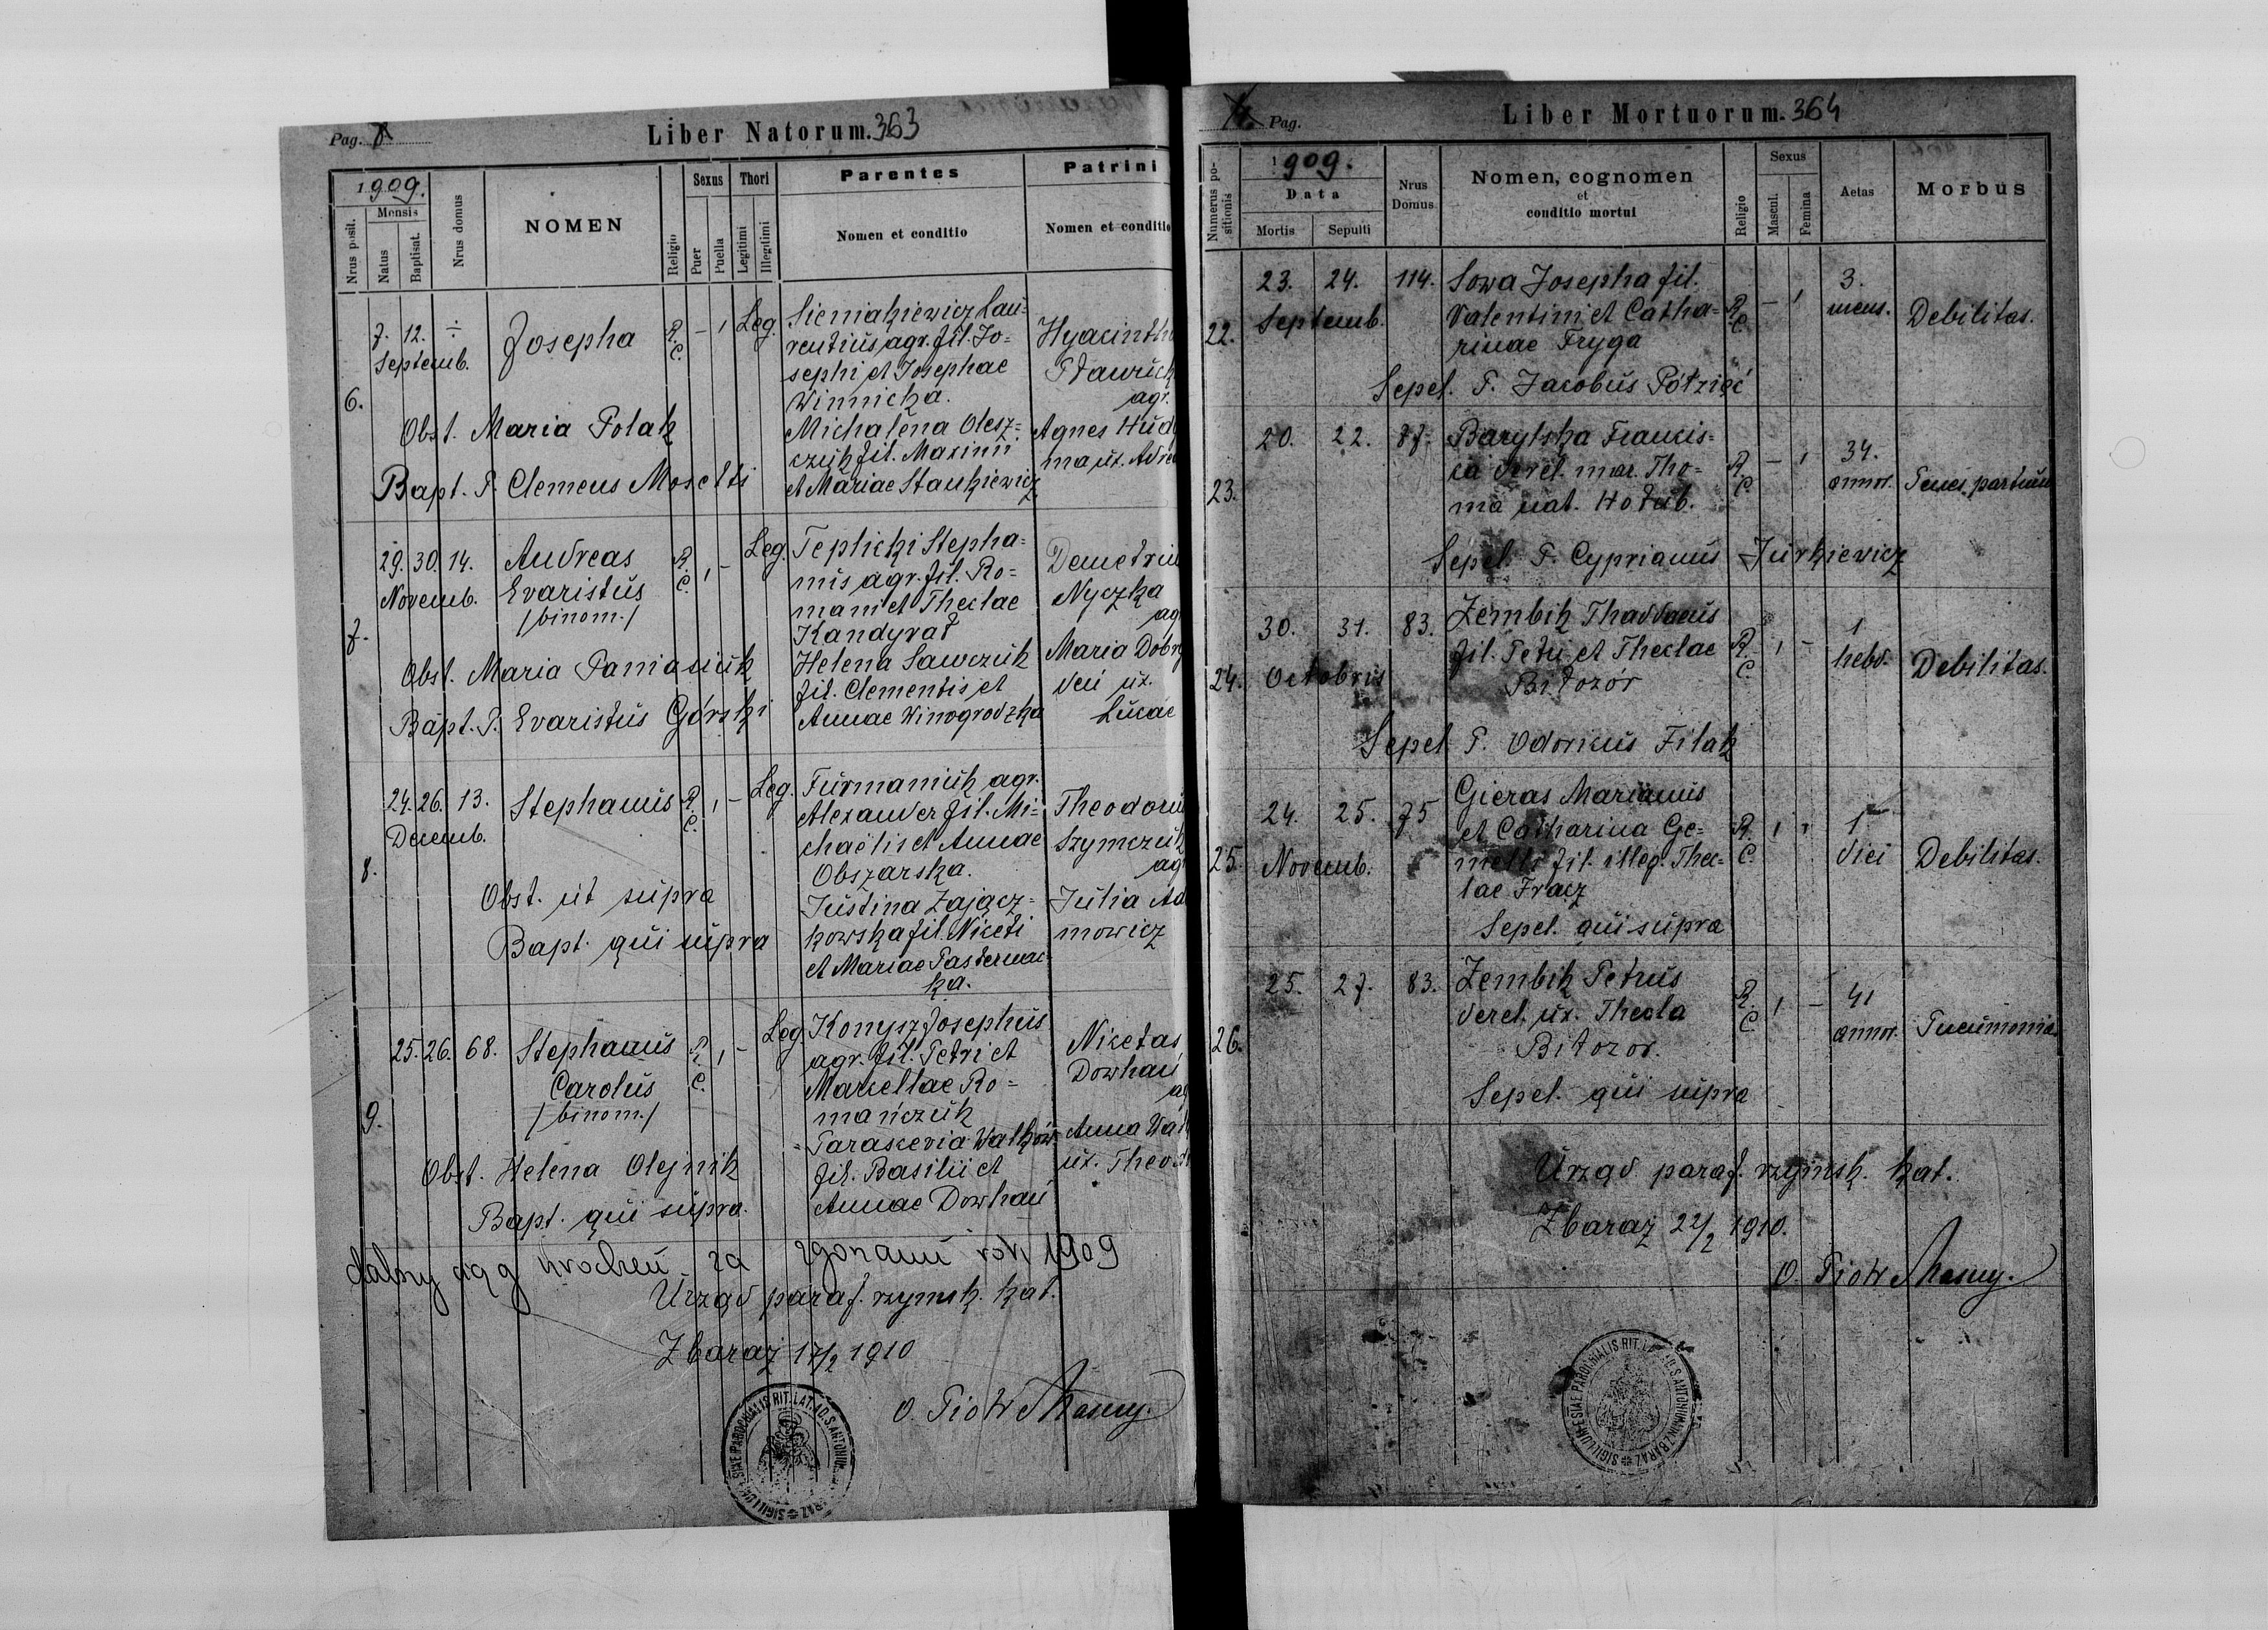 Pag. 8
Liber Natorum. 363
1909.
Nrus posit.
Mensis
Natus
Baptisat.
Nrus domus
NOMEN
Religio
Sexus
Puer
Puella
Thori
Legitimi
Illegitimi
Parentes
Nomen et conditio
Patrini
Nomen et conditio
6.
7. 12. ÷
Septemb.
Josepha
R. C. – 1 Leg.
Sieniakiewicz Lau=
rentius, agr. fil. Jo=
sephi et Josephae
Winnicka.
Michalena Olesz=
czuk fil. Maximi
et Mariae Stankiewicz
Hyacinth
agr.
Agnes
ma ux.
Obst. Maria Polak
Bapt. P. Clemens Mosetti
7.
29. 30. 14.
Novemb.
Andreas
Evaristus
/binom./
R. C. 1 – Leg.
Teplicki Stepha=
nus agr. fil. Ro=
mani et Theclae
Kandyrał
Helena Sawczuk
fil. Clementis et
Annae Winogrodzka
Demetriu
Nyczka
ag
Maria Dobr
ux.
Lucae
Obst. Maria Paniasiuk
Bapt. P. Evaristus Górski
8.
24. 26. 13.
Decemb.
Stephanus
R. C. 1 – Leg.
Furmaniuk agr.
Alexander fil. Mi=
chaëlis et Annae
Obszarska.
Justina Zającz=
kowska fil. Niceti
et Mariae Pasternac=
ka.
Theodoru
Szymczuk
ag
Julia Ad
mowicz
Obst. ut supra
Bapt. qui supra
9.
25. 26. 68.
Stephanus
Carolus
/binom./
R. C. 1 – Leg.
Konysz Josephus
agr. fil. Petri et
Marcellae Ro=
mańczuk
Parascevia Walków
fil. Basilii et
Annae Dowhań
Nicetas
Dowhań
ag
Anna Wa
ux. Theod
Obst. Helena Olejnik
Bapt. qui supra.
dalszy ciąg urodzeń za zgonami rok 1909
Urząd paraf. rzymsk. kat.
Zbaraż 17/2 1910
O. Piotr
SIGILLUM ECCLESIAE PAROCHIALIS RIT. LAT. AD S. ANTONIUM
Pag.
Liber Mortuorum. 364
Numerus po-
sitionis
1909.
Data
Mortis
Sepulti
Nrus
Domus
Nomen, cognomen
et
conditio mortui
Religio
Sexus
Mascul.
Femina
Aetas
Morbus
22.
23. 24. 114.
Septemb.
Sowa Josepha fil.
Valentini et Catha=
rinae Fryga
R. C. – 1
3.
mens.
Debilitas.
Sepel. P. Jacobus Półzięć
23.
20. 22. 87.
Barylska Francis=
ca derel. mar. Tho=
ma nat. Hołub.
R. C. – 1
34.
annor.
Penes partum
Sepel. P. Cyprianus Jurkiewicz
24.
30. 31. 83.
Octobris
Zembik Thaddaeus
fil. Petri et Theclae
Bitozor
R. C. 1 –
1
hebd.
Debilitas.
Sepel. P. Odoricus Filak
25.
24. 25. 75
Novemb.
Gieras Marianus
et Catharina Ge=
melli fil. illeg. Thec=
lae Fracz
R. C. 1 1
1
diei
Debilitas.
Sepel. qui supra
26.
25. 27. 83.
Zembik Petrus
derel. ux. Thecla
Bitozor.
R. C. 1 –
41
annor.
Pneumonia
Sepel. qui supra
Urząd paraf. rzymsk. kat.
Zbaraż 22/2 1910.
O. Piotr
SIGILLUM ECCLESIAE PAROCHIALIS RIT. LAT. AD S. ANTONIUM IN ZBARAŻ